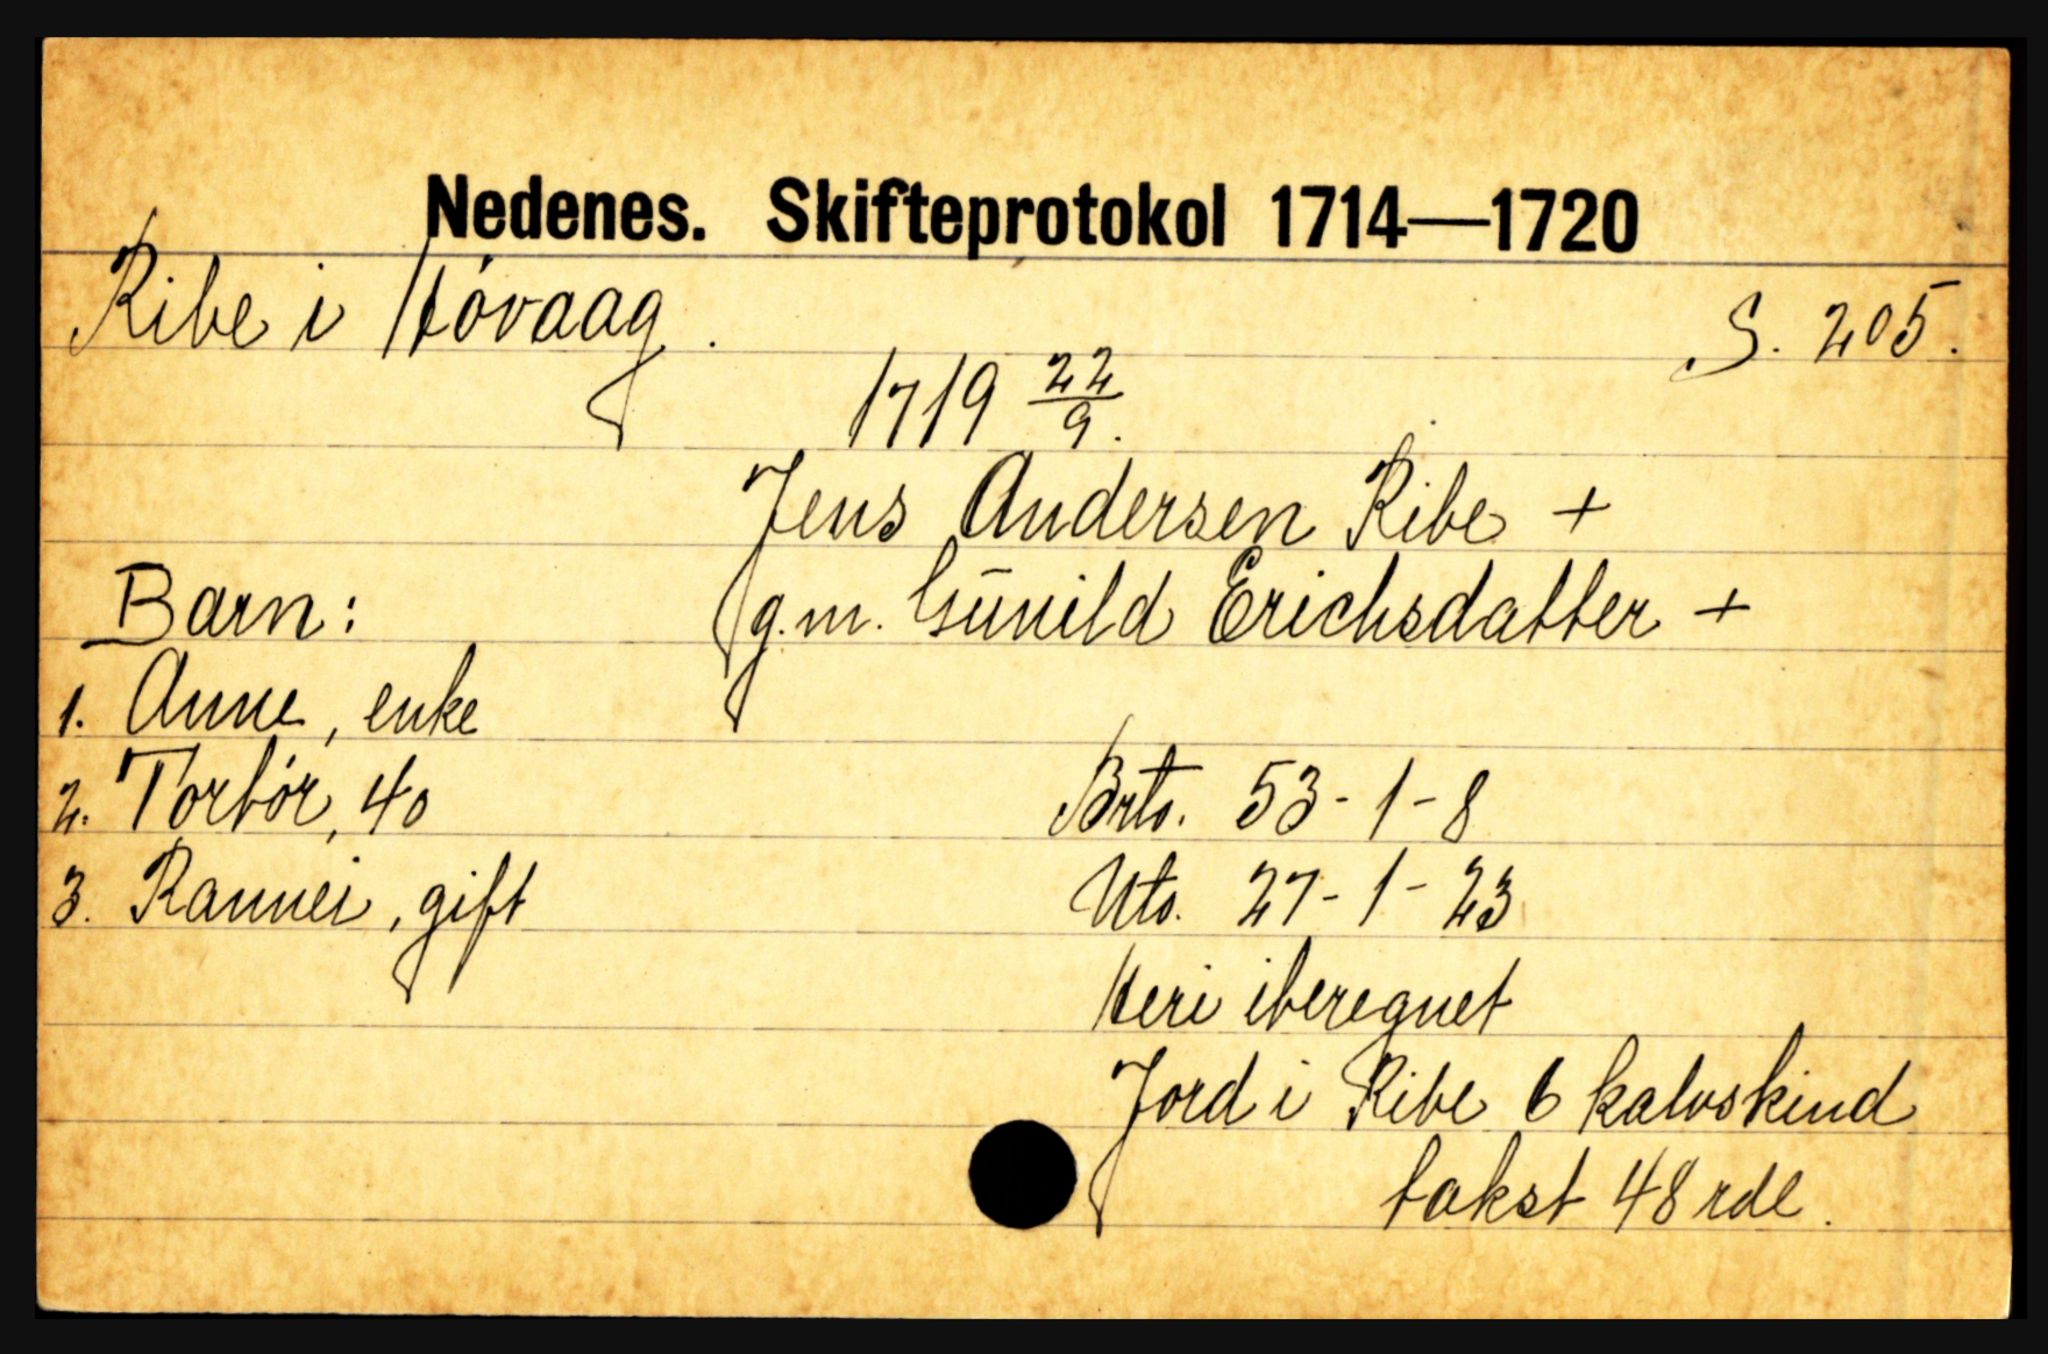 Nedenes. Skifteprotokol 1714—1720
Ribe i Hóvaag.
S. 205.
1719 22/9.
Jens Andersen Ribe +
g.m. Gūnild Erichsdatter +
Barn:
1. Anne, enke
2. Torbór, 40
3. Rannei, gift
Brto. 53-1-8
Nto. 27-1-23
Heri iberegnet
Jord i Ribe 6 kalvskind
takst 48 rdl.